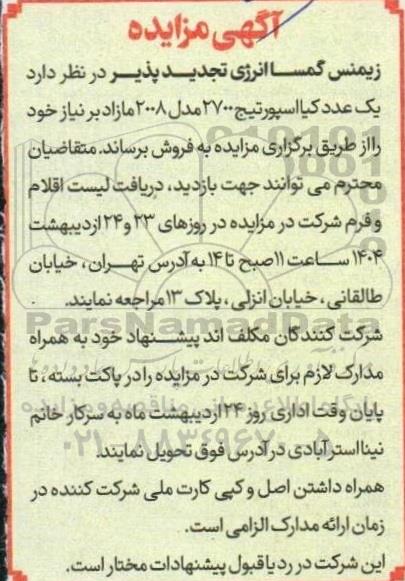 آگهی مزایده
زیمنس گمسا انرژی تجدید پذیر در نظر دارد
یک عدد کیا اسپورتیج ۲۷۰۰ مدل ۲۰۰۸ مازاد بر نیاز خود
را از طریق برگزاری مزایده به فروش برساند. متقاضیان
محترم می توانند جهت بازدید، دریافت لیست اقلام
و فرم شرکت در مزایده در روزهای ۲۳ و ۲۴ اردیبهشت
۱۴۰۴ ساعت ۱۱ صبح تا ۱۴ به آدرس تهران، خیابان
طالقانی، خیابان انزلی، پلاک ۱۳ مراجعه نمایند.
ParsNamadData
شرکت کنندگان مکلف اند پیشنهاد خود به همراه
مدارک لازم برای شرکت در مزایده را در پاکت بسته، تا
پایان وقت اداری روز ۲۴ اردیبهشت ماه به سرکار خانم
۰۲۱-۸۸۳۴۹۶۷۰-۵
نینا استرآبادی در آدرس فوق تحویل نمایند.
همراه داشتن اصل و کپی کارت ملی شرکت کننده در
زمان ارائه مدارک الزامی است.
این شرکت در رد یا قبول پیشنهادات مختار است.